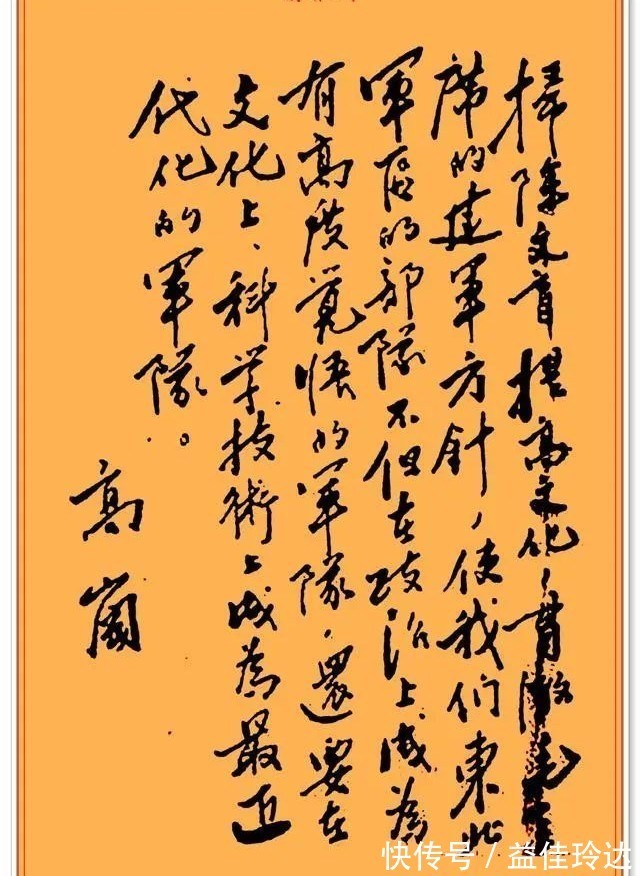 掃除文盲提高文化,貫澈毛主
席的建軍方針,使我们東北
軍区的部隊不但在政治上成為
有高度覚悟的軍隊,還要在
文化上、科学技術上成為最近
代化的軍隊。
高崗
快传号/益佳玲达